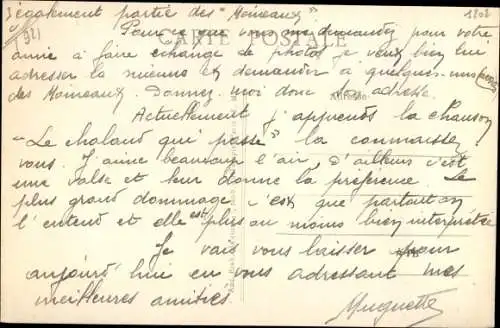 également partie des "Moineaux".
1921
1202
CARTE POSTALE
Pour ce que vous me demandez pour votre
amie à faire échange de photos je veux bien lui
adresser la mienne et demander à quelques-unes
des Moineaux. Donnez-moi donc son adresse.
Actuellement j'apprends la chanson
"Le chaland qui passe" la connaissez
vous. J'aime beaucoup l'air, d'ailleurs c'est
une valse et leur donne la préférence. Le
plus grand dommage c'est que partout on
l'entend et elle est plus ou moins bien interprétée
Je vais vous laisser pour
aujourd'hui en vous adressant mes
meilleures amitiés
Muguette